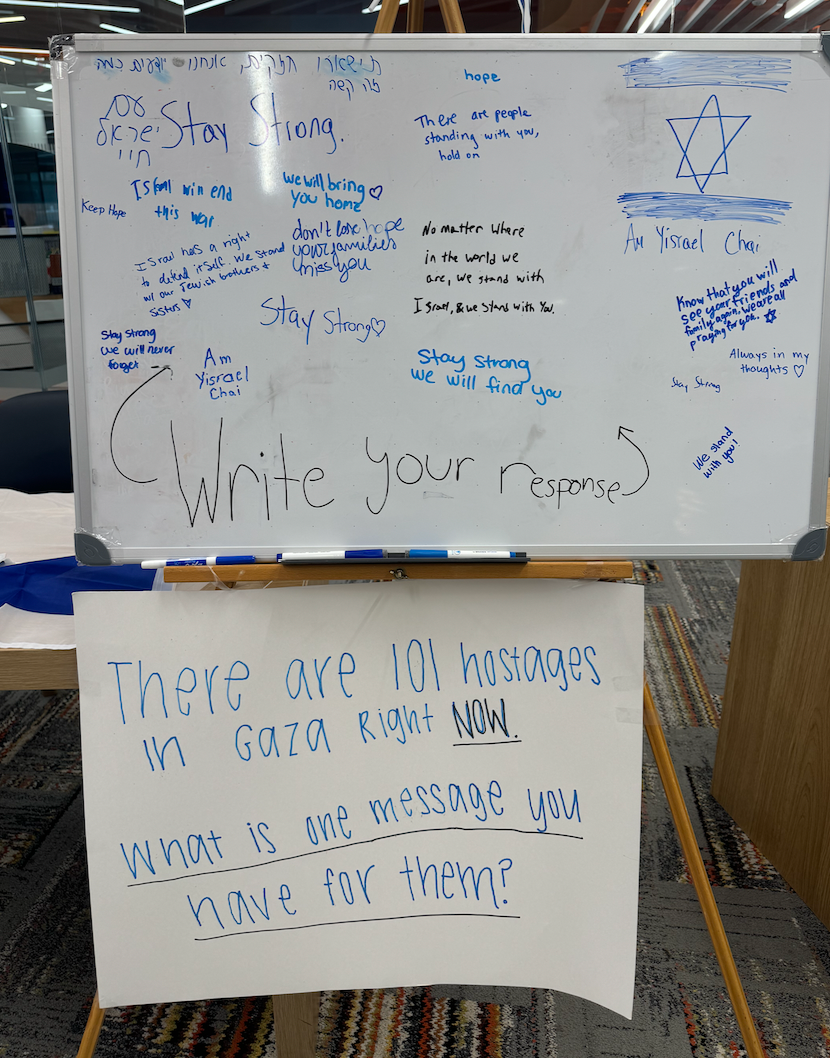 תישארו חזקים, אנחנו יודעים כמה
זה קשה
עם
ישראל
חיי
Stay Strong.
hope
There are people
standing with you,
hold on
Keep Hope
win end
this war
we will bring
you home
don't lose hope
your families
miess you
Israel has a right
to defend itself. We stand
w/ our Jewish brothers +
sisters
No matter where
in the world we
are, we stand with
Israel, & we stand with You.
Am Yisrael Chai
Know that you will
see your friends and
family again. we are all
praying for you.
Stay Strong
Stay strong
we will never
forget
Am
Yisrael
Chai
Stay strong
we will find you
Always in my
thoughts
Stay Strong
We stand
with you!
Write your response
There are 101 hostages
in Gaza Right NOW.
What is one message you
have for them?